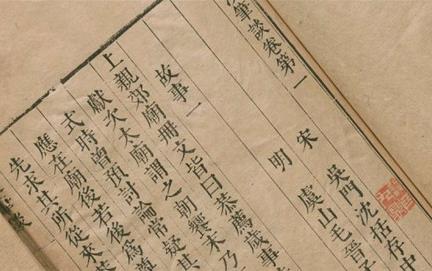 筆談卷第一
宋 吳門沈括存中
明 虞山毛晉子
故事一
上親郊廟冊文皆曰恭薦歲事
獻次太廟謂之朝饗末乃
式時曾預討論常疑其
應在廟後若後為
先求其所從來